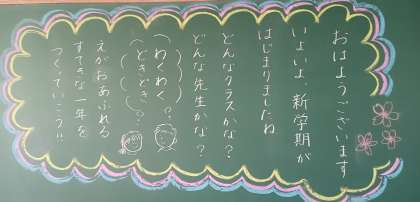 おはようございます
いよいよ、新学期が
はじまりましたね
どんなクラスかな？
どんな先生かな？
（わくわく？）
（どきどき？）
えがおあふれる
すてきな一年を
つくっていこう！！